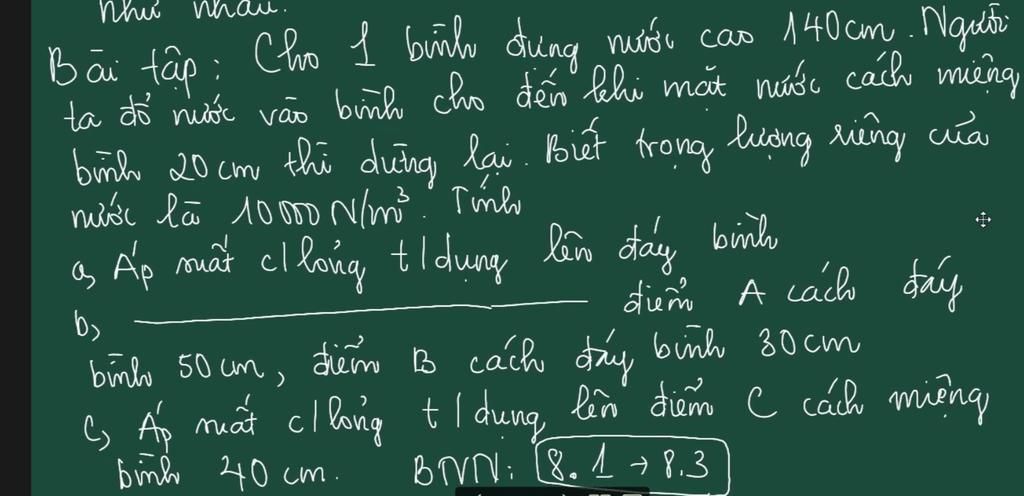 như nhau.
Bài tập: Cho 1 bình đựng nước cao 140cm. Người
ta đổ nước vào bình cho đến khi mặt nước cách miệng
bình 20 cm thì dừng lại. Biết trọng lượng riêng của
nước là 10000 N/m³. Tính
a, Áp suất c/lỏng t/dụng lên đáy bình
b, ———————— điểm A cách đáy
bình 50 cm, điểm B cách đáy bình 30cm
c, Áp suất c/lỏng t/dụng lên điểm C cách miệng
bình 40 cm. BNN: 8.1 → 8.3